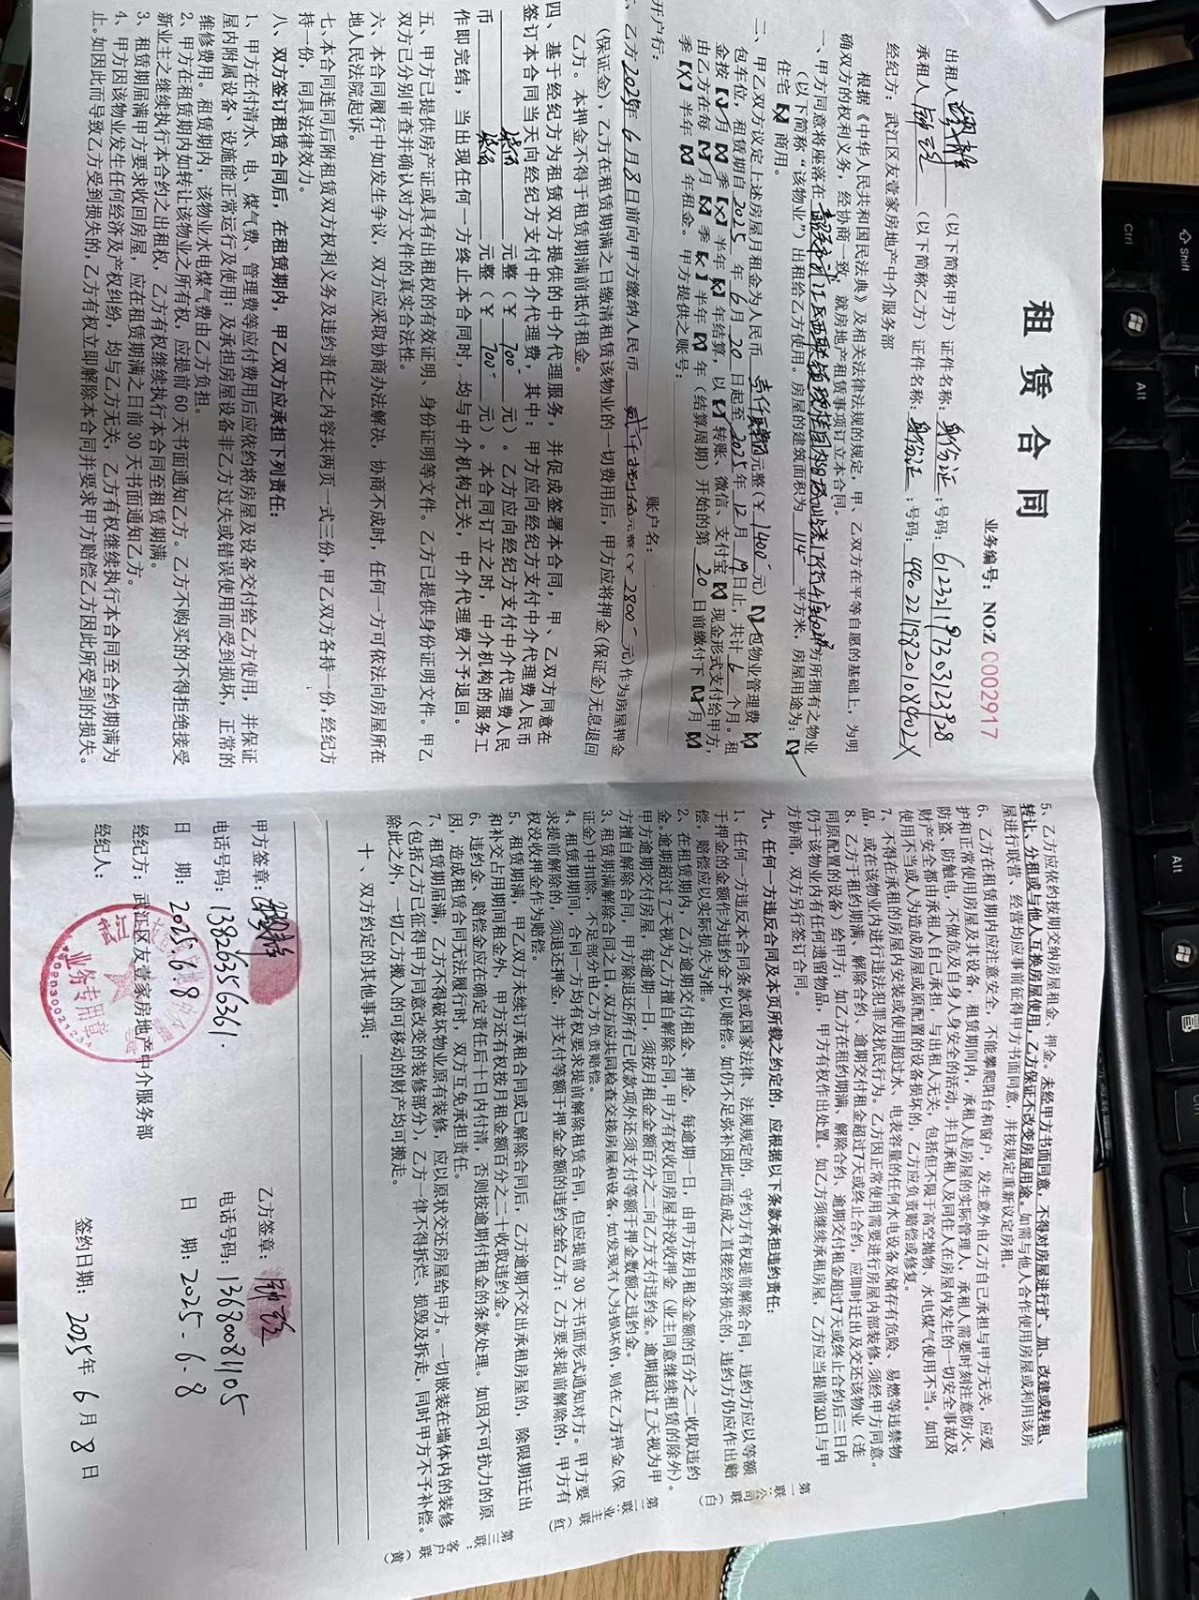 租赁合同
业务编号：NO:Z 0002917
出租人 （以下简称甲方）证件名称：身份证；号码：
承租人 （以下简称乙方）证件名称：身份证；号码：
经纪方：武江区友壹家房地产中介服务部
根据《中华人民共和国民法典》及相关法律法规的规定，甲、乙双方在平等自愿的基础上，为明
确双方的权利义务，经协商一致，就房地产租赁事项订立本合同。
一、甲方同意将座落在 方所拥有之物业
（以下简称“该物业”）出租给乙方使用。房屋的建筑面积为 114 平方米，房屋用途为：
住宅 商用。
二、甲乙双方议定上述房屋月租金为人民币 元整（￥1400 元） 包物业管理费
包车位，租赁期自 2025 年 6 月 20 日起至 2025 年 12 月 19 日止，共计 6 个月。租
金按 月 季 半年 年结算，以 转账、微信、支付宝 现金形式支付给甲方，
由乙方在每 月 季 半年 年（结算周期）开始的第 20 日前缴付下 月
季 半年 年租金。甲方提供之账号：
开户行： 账户名：
、乙方 2025年6月8日前向甲方缴纳人民币 元整（￥2800 元)作为房屋押金
(保证金)，乙方在租赁期满之日缴清租赁该物业的一切费用后，甲方应将押金(保证金)无息退回
乙方。本押金不得于租赁期满前抵付租金。
四、基于经纪方为租赁双方提供的中介代理服务，并促成签署本合同，甲、乙双方同意在
签订本合同当天向经纪方支付中介代理费，其中：甲方应向经纪方支付中介代理费人民币
元整（￥ 700 元）。乙方应向经纪方支付中介代理费人民
币 元整（￥ 700 元）。本合同订立之时，中介机构的服务工
作即完结，当出现任何一方终止本合同时，均与中介机构无关，中介代理费不予退回。
五、甲方已提供房产证或具有出租权的有效证明、身份证明等文件。乙方已提供身份证明文件。甲乙
双方已分别审查并确认对方文件的真实合法性。
六、本合同履行中如发生争议，双方应采取协商办法解决，协商不成时，任何一方可依法向房屋所在
地人民法院起诉。
七、本合同连同后附租赁双方权利义务及违约责任之内容共两页一式三份，甲乙双方各持一份，经纪方
持一份，同具法律效力。
八、双方签订租赁合同后，在租赁期内，甲乙双方应承担下列责任：
1、甲方在付清水、电、煤气费、管理费等应付费用后应依约将房屋及设备交付给乙方使用，并保证
屋内附属设备、设施能正常运行及使用；及承担房屋设备非乙方过失或错误使用而受到损坏，正常的
维修费用。租赁期内，该物业水电煤气费由乙方负担。
2、甲方在租赁期内如转让该物业之所有权，应提前 60 天书面通知乙方。乙方不购买的不得拒绝接受
新业主之继续执行本合约之出租权，乙方有权继续执行本合同至租赁期满。
3、租赁期届满甲方要求收回房屋，应在租赁期满之日前 30 天书面通知乙方。
4、甲方因该物业发生任何经济及产权纠纷，均与乙方无关，乙方有权继续执行本合同至合约期满为
止。如因此而导致乙方受到损失的，乙方有权立即解除本合同并要求甲方赔偿乙方因此所受到的损失。
5、乙方应依约按期交纳房屋租金、押金。未经甲方书面同意，不得对房屋进行扩、加、改建或转租、
转让、分租或与他人互换房屋使用，乙方保证不改变房屋用途。如需与他人合作使用房屋或利用该房
屋进行联营、经营均应事前征得甲方书面同意，并按规定重新议定房租。
6、乙方在租赁期内应注意安全，不能攀爬阳台和窗户，发生意外由乙方自己承担与甲方无关，应爱
护和正常使用房屋及其设备，租赁期间内，承租人是房屋的实际管理人，承租人需要时刻注意防火、
防盗、防触电，不做危及自身人身安全的活动。并且承租人及同住人在房屋内发生的一切安全事故及
财产安全都由承租人自己承担，与出租人无关，包括但不限于高空抛物、水电煤气使用不当。如因
使用不当或人为造成房屋或原配置的设备损坏的，乙方应负责赔偿或修复。
7、不得在承租的房屋内安装或使用超过水、电表容量的任何水电设备及储存有危险、易燃等违禁物
品，或在该物业内进行违法犯罪及扰民行为。乙方因正常使用需要进行房屋内部装修，须经甲方同意。
8、乙方于租约期满、解除合约、逾期交付租金超过7天或终止合约，应即时迁出及交还该物业（连
同原配置的设备）给甲方；如乙方在租约期满、解除合约、逾期交付租金超过7天或终止合约后三日内
仍于该物业内有任何遗留物品，甲方有权作出处置。如乙方须继续承租房屋，乙方应当提前30日与甲
方协商，双方另行签订合同。
九、任何一方违反合同及本页所载之约定的，应根据以下条款承担违约责任：
1、任何一方违反本合同条款或国家法律、法规规定的，守约方有权提前解除合同，违约方应以等额
于押金的金额作为违约金予以赔偿。如仍不足弥补因此而造成之直接经济损失的，违约方仍应作出赔
偿，赔偿应以实际损失为准。
2、在租赁期内，乙方逾期交付租金、押金，每逾期一日，由甲方按月租金金额的百分之二收取违约
金。逾期超过 7 天视为乙方擅自解除合同，甲方有权收回房屋并没收押金（业主同意继续租赁的除外）。
甲方逾期交付房屋，每逾期一日，须按月租金金额百分之二向乙方支付违约金。逾期超过 7 天视为甲
方擅自解除合同，甲方除退还所有已收款项外还须支付等额于押金数额之违约金。
3、租赁期满解除合同之日，双方应共同检查交接房屋和设备，如发现有人为损坏的，则在乙方押金（保
证金)中扣除，不足部分由乙方负责赔偿。
4、租赁期期间，合同一方均有权要求提前解除租赁合同，但应提前 30 天书面形式通知对方。甲方要
求提前解除的，须退还押金，并支付等额于押金金额的违约金给乙方；乙方要求提前解除的，甲方有
权没收押金作为赔偿。
5、租赁期满，甲乙双方未续订承租合同或已解除合同后，乙方逾期不交出承租房屋的，除限期迁出
和补交占用期间租金外，甲方还有权按月租金额百分之二十收取违约金。
6、违约金、赔偿金应在确定责任后十日内付清，否则按逾期付租金的条款处理。如因不可抗力的原
因，造成租赁合同无法履行时，双方互免承担责任。
7、租赁期届满，乙方不得破坏物业原有装修，应以原状交还房屋给甲方。一切嵌装在墙体内的装修
（包括乙方已征得甲方同意改变的装修部分），乙方一律不得拆烂、损毁及拆走，同时甲方不予补偿。
除此之外，一切乙方搬入的可移动的财产均可搬走。
十、双方约定的其他事项：
第一联：公司联（白）
第二联：业主联（红）
第三联：客户联（黄）
甲方签章： 乙方签章：
电话号码：13826356361. 电话号码：13680081105
日 期：2025.6.8 日 期：2025-6-8
经纪方：武江区友壹家房地产中介服务部
经纪人： 签约日期：2025年6月8日
业务专用章